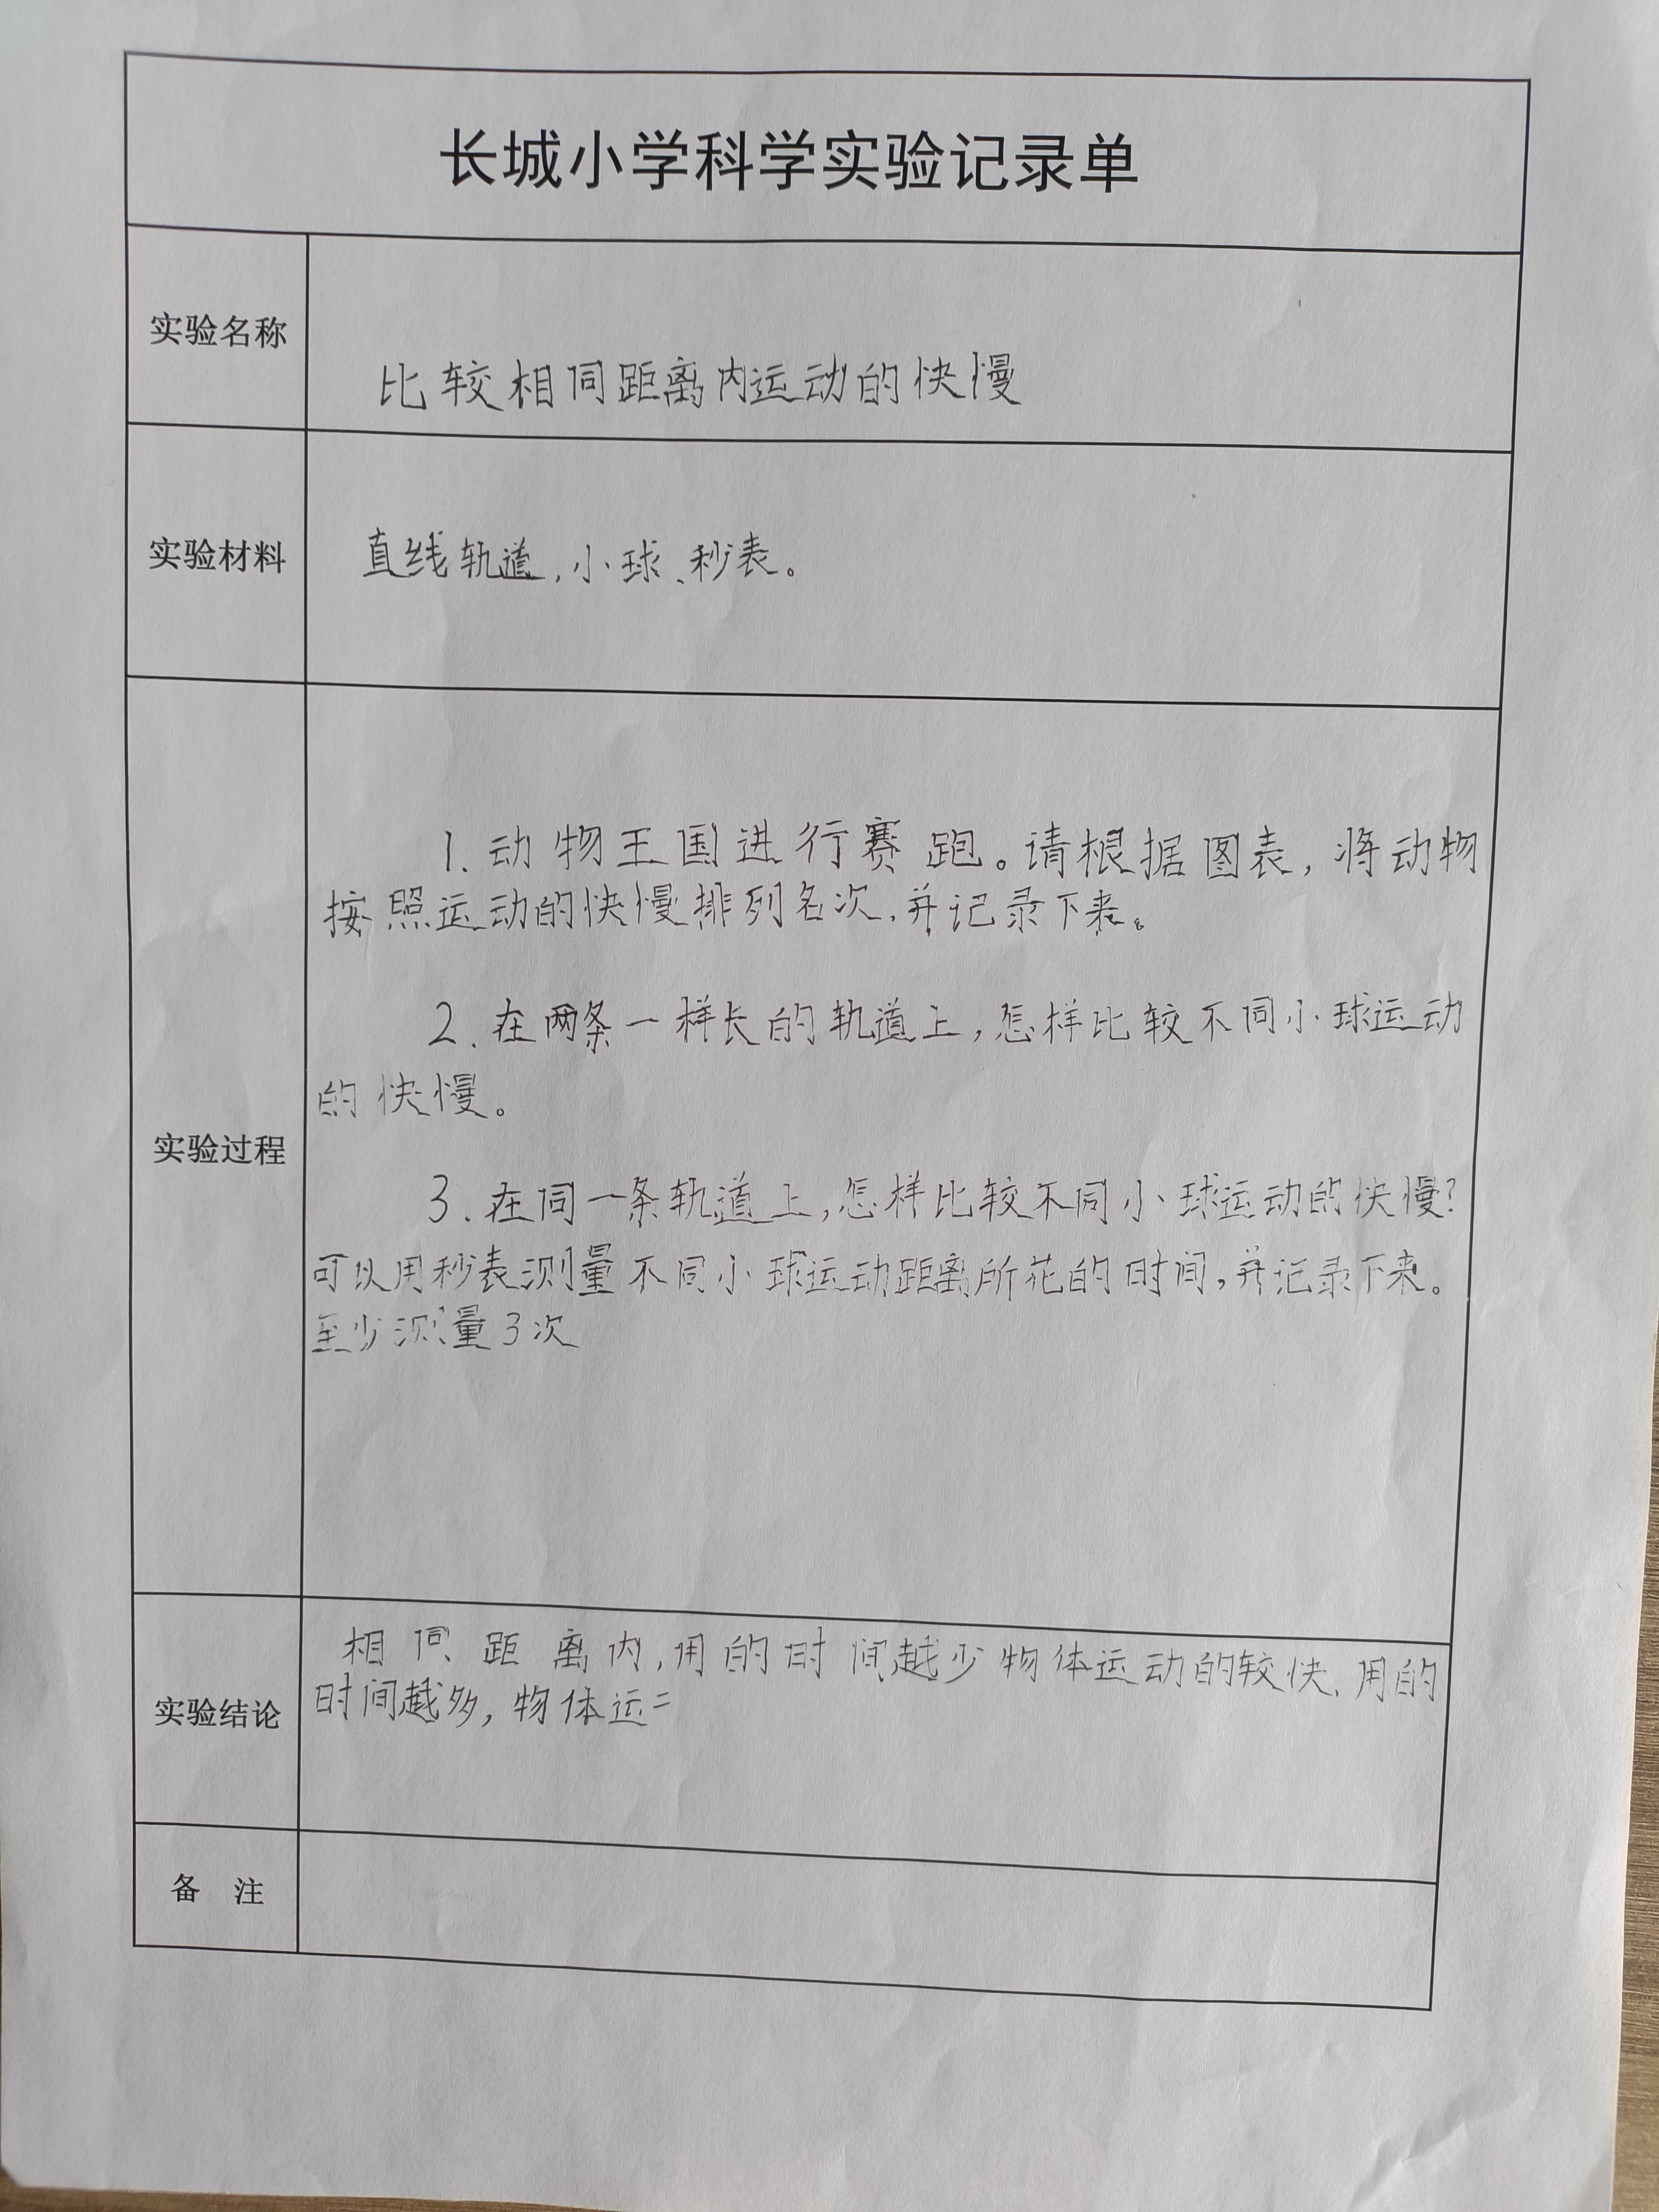 长城小学科学实验记录单
实验名称
比较相同距离内运动的快慢
实验材料
直线轨道,小球、秒表。
实验过程
1.动物王国进行赛跑。请根据图表,将动物
按照运动的快慢排列名次,并记录下来。
2.在两条一样长的轨道上,怎样比较不同小球运动
的快慢。
3.在同一条轨道上,怎样比较不同小球运动的快慢?
可以用秒表测量不同小球运动距离所花的时间,并记录下来。
至少测量3次
实验结论
相同距离内,用的时间越少物体运动的较快,用的
时间越多,物体运
备 注